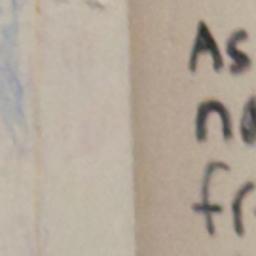 As
no
fr